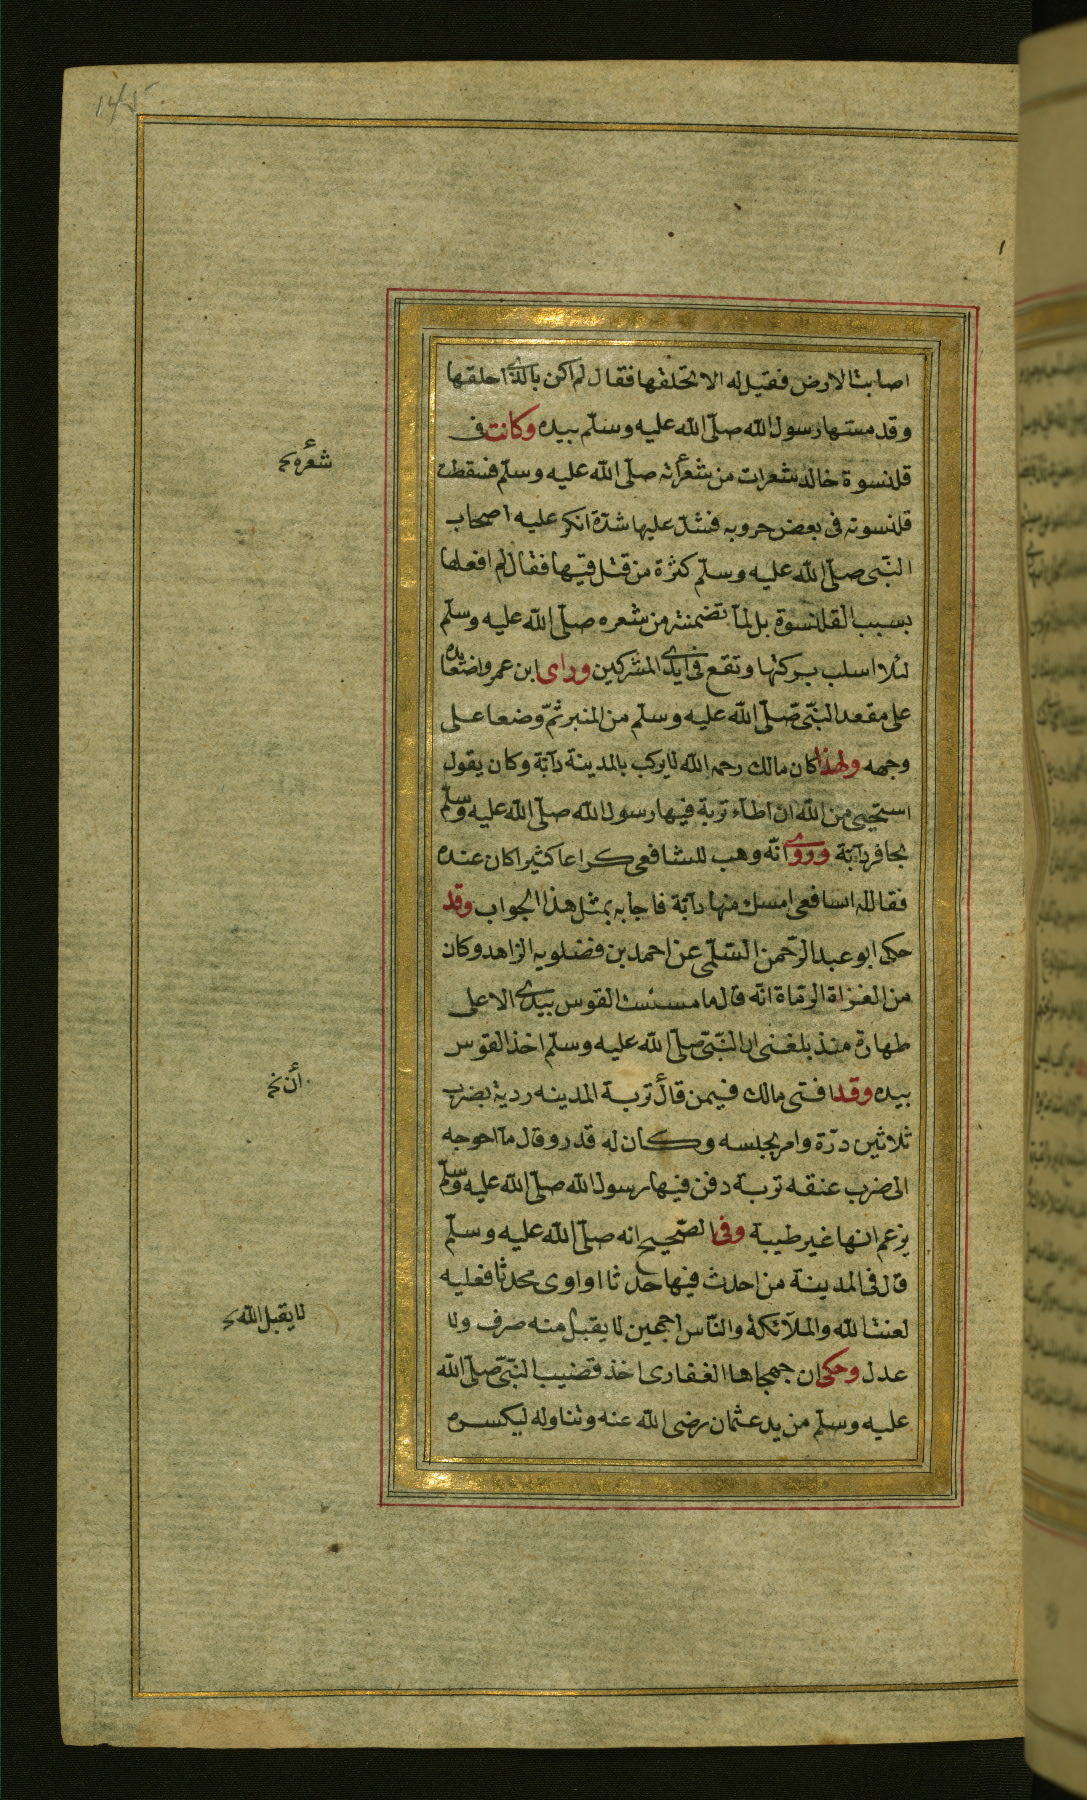 اصابت الارض فقيل له الا تحلقها فقال لم اكن بالذى احلقها
وقد مستها رسول الله صلّى الله عليه وسلّم بيده وكانت فى
قلنسوة خالد شعرات من شعراته صلّى الله عليه وسلّم فسقطت
قلنسوته فى بعض حروبه فشدّ عليها شدّة انكر عليه اصحاب
النّبى صلّى الله عليه وسلّم كثرة من قتل فيها فقال لم افعلها
بسبب القلنسوة بل لمآ تضمنته من شعره صلّى الله عليه وسلّم
لئلا اسلب بركتها وتقع فى ايدى المشركين وراى ابن عمر واضعا يده
على مقعد النّبى صلّى الله عليه وسلّم من المنبر ثمّ وضعا على
وجهه ولهذا كان مالك رحمه الله لا يركب بالمدينة دآبّة وكان يقول
استحيى من الله ان اطاء تربة فيها رسول الله صلّى الله عليه وسلّم
بحافر دآبّة وروى انّه وهب للشافعى كراعا كثيرا كان عنده
فقال له اسافعى امسك منها دآبّة فاجابه بمثل هذا الجواب وقد
حكى ابو عبد الرّحمن السّلمى عن احمد بن فضلويه الزاهد وكان
من الغزاة الرماة انّه قال ما مسست القوس بيدى الا على
طهارة منذ بلغنى ان النّبىّ صلّى الله عليه وسلّم اخذ القوس
بيده وقد افتى مالك فيمن قال تربة المدينه ردية بضرب
ثلاثين درّة وامر بحبسه وكان له قدر وقال مآ احوجه
الى ضرب عنقه تربة دفن فيها رسول الله صلّى الله عليه وسلّم
يزعم انها غير طيبة وفى الصّحيح انه صلّى الله عليه وسلّم
قال فى المدينة من احدث فيها حدثا او اوى محدثا فعليه
لعنت الله والملآئكة والنّاس اجمعين لا يقبل منه صرف ولا
عدل وحكى ان جهجاها الغفارى اخذ قضيب النّبىّ صلّى الله
عليه وسلّم من يد عثمان رضى الله عنه وتناوله ليكسره
شعره نخ
أن نخ
لا يقبل الله نخ